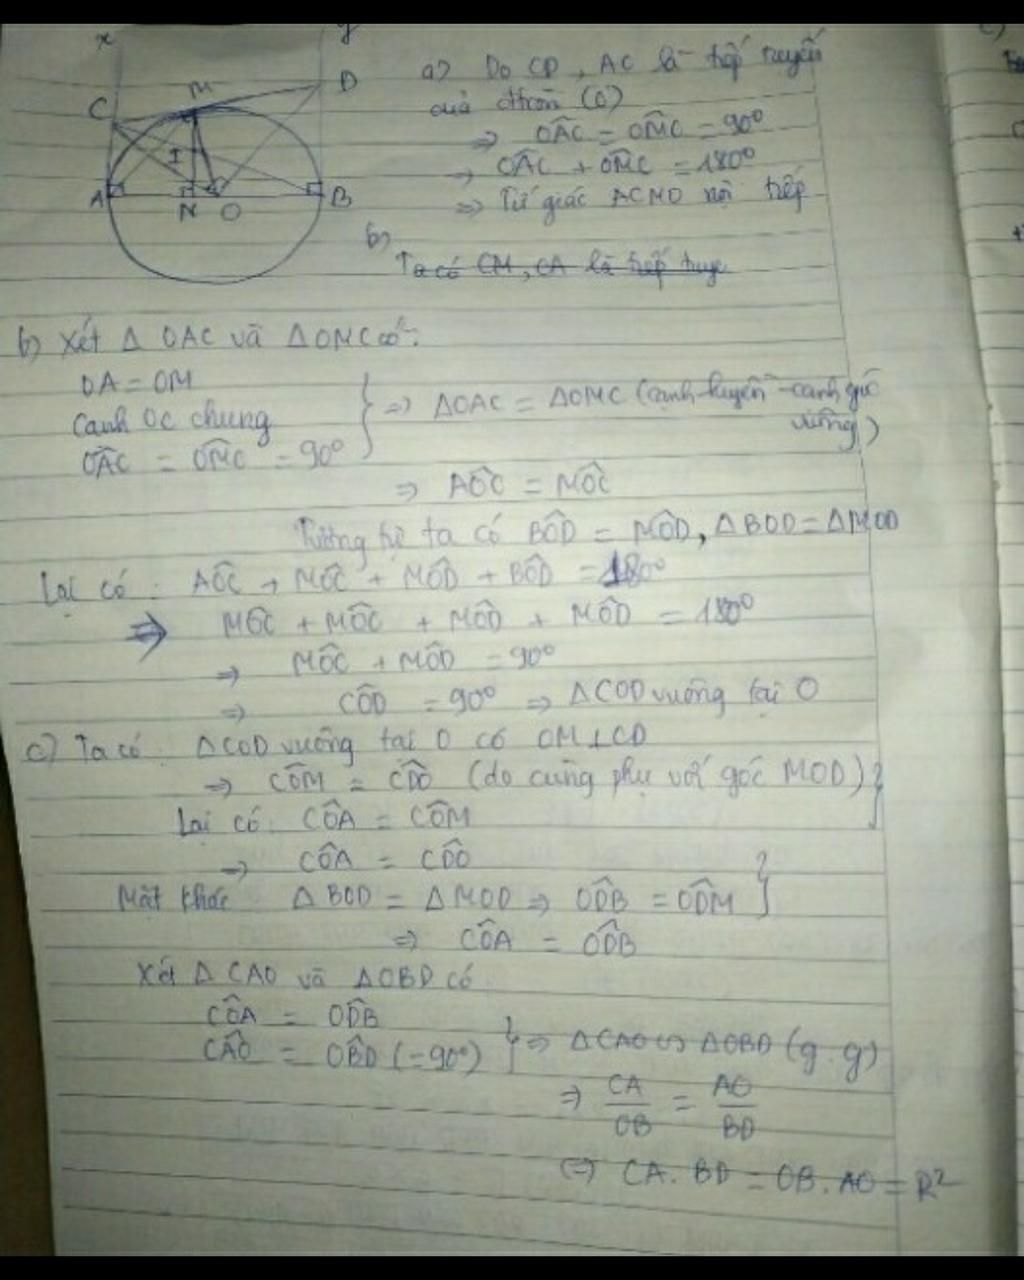 x
y
C
M
D
I
A
B
N
O
a) Do CD, AC là tiếp tuyến
của đtròn (O)
⇒ OÂC = OM̂C = 90°
⇒ OÂC + OM̂C = 180°
⇒ Tứ giác ACMO nội tiếp
b)
Ta có CM, CA là tiếp tuyế
b) Xét Δ OAC và Δ OMC có:
OA = OM
Cạnh OC chung
OÂC = OM̂C = 90°
} ⇒ ΔOAC = ΔOMC (cạnh huyền - cạnh góc
vuông)
⇒ AÔC = MÔC
Tương tự ta có BÔD = MÔD, ΔBOD = ΔMOD
Lại có: AÔC + MÔC + MÔD + BÔD = 180°
⇒ MÔC + MÔC + MÔD + MÔD = 180°
⇒ MÔC + MÔD = 90°
⇒ CÔD = 90° ⇒ ΔCOD vuông tại O
c) Ta có ΔCOD vuông tại O có OM⊥CD
⇒ CÔM = CD̂O (do cùng phụ với góc MOD) }
Lại có CÔA = CÔM
⇒ CÔA = CD̂O
Mặt khác ΔBOD = ΔMOD ⇒ OD̂B = OD̂M }
⇒ CÔA = OD̂B
Xét ΔCAO và ΔOBD có
CÔA = OD̂B
CÂO = OB̂D (=90°) } ⇒ ΔCAO ∽ ΔOBD (g.g)
⇒ CA/OB = AO/BD
⇔ CA. BD = OB. AO = R²